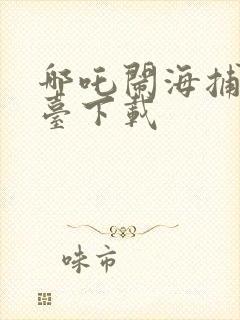 哪吒鬧海捕
臺下載
咪市